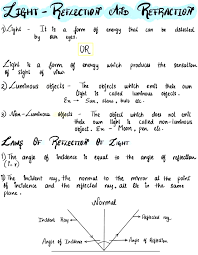 LIGHT - REFLECTION AND REFRACTION
1) Light - It is a form of energy that can be detected
by our eyes.
OR
Light is a form of energy which produces the sensation
of sight of view
2) Luminous objects - The objects which emit their own
light is called luminous objects.
Ex → Sun, stars, bulb etc.
3) Non-Luminous objects → The object which does not emit
their own light is called non-luminous
object. Ex - Moon, pen etc.
LAWS OF REFLECTION OF LIGHT
1) The angle of incidence is equal to the angle of reflection
II) The incident ray, the normal to the mirror at the point
of incidence and the reflected ray, all lie in the same
plane.
Normal
Incident Ray
Reflected ray
Angle of Incidence
Angle of Reflection